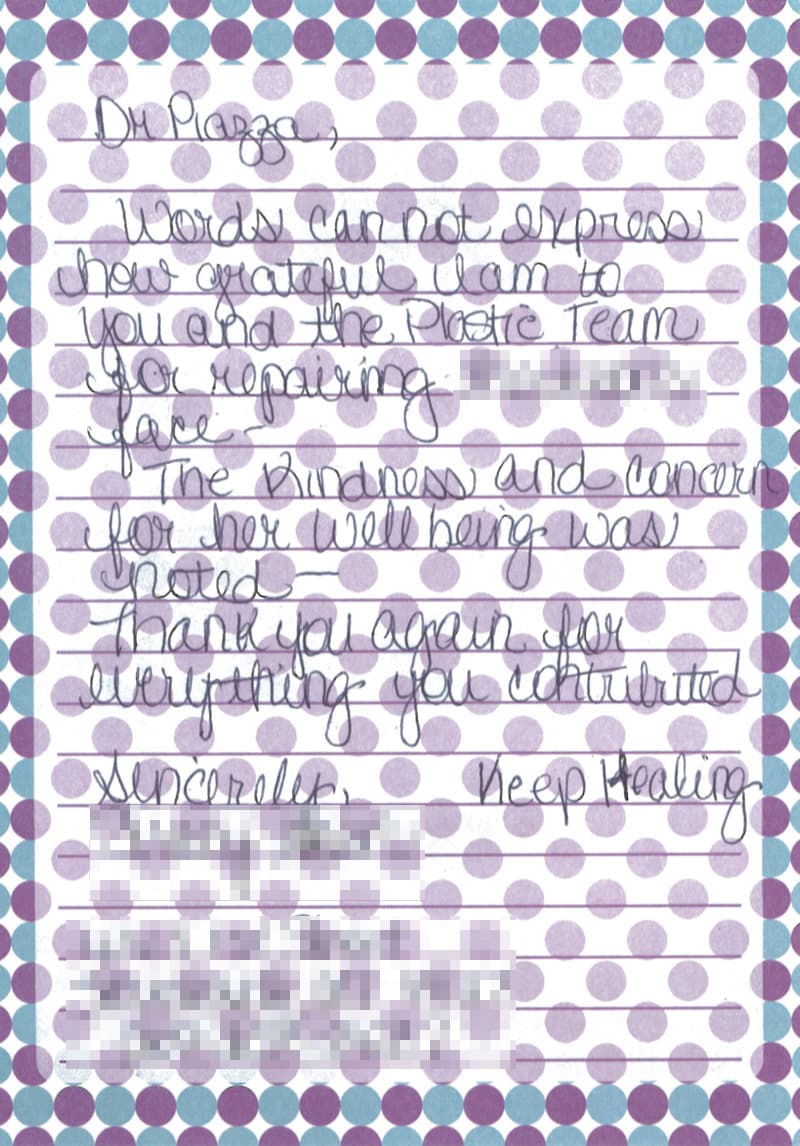 Dr Piazza,
Words can not express
how grateful I am to
you and the Plastic Team
for repairing
face-
The Kindness and concern
for her well being was
noted—
Thank you again for
everything you contributed
Sincerely, Keep Healing